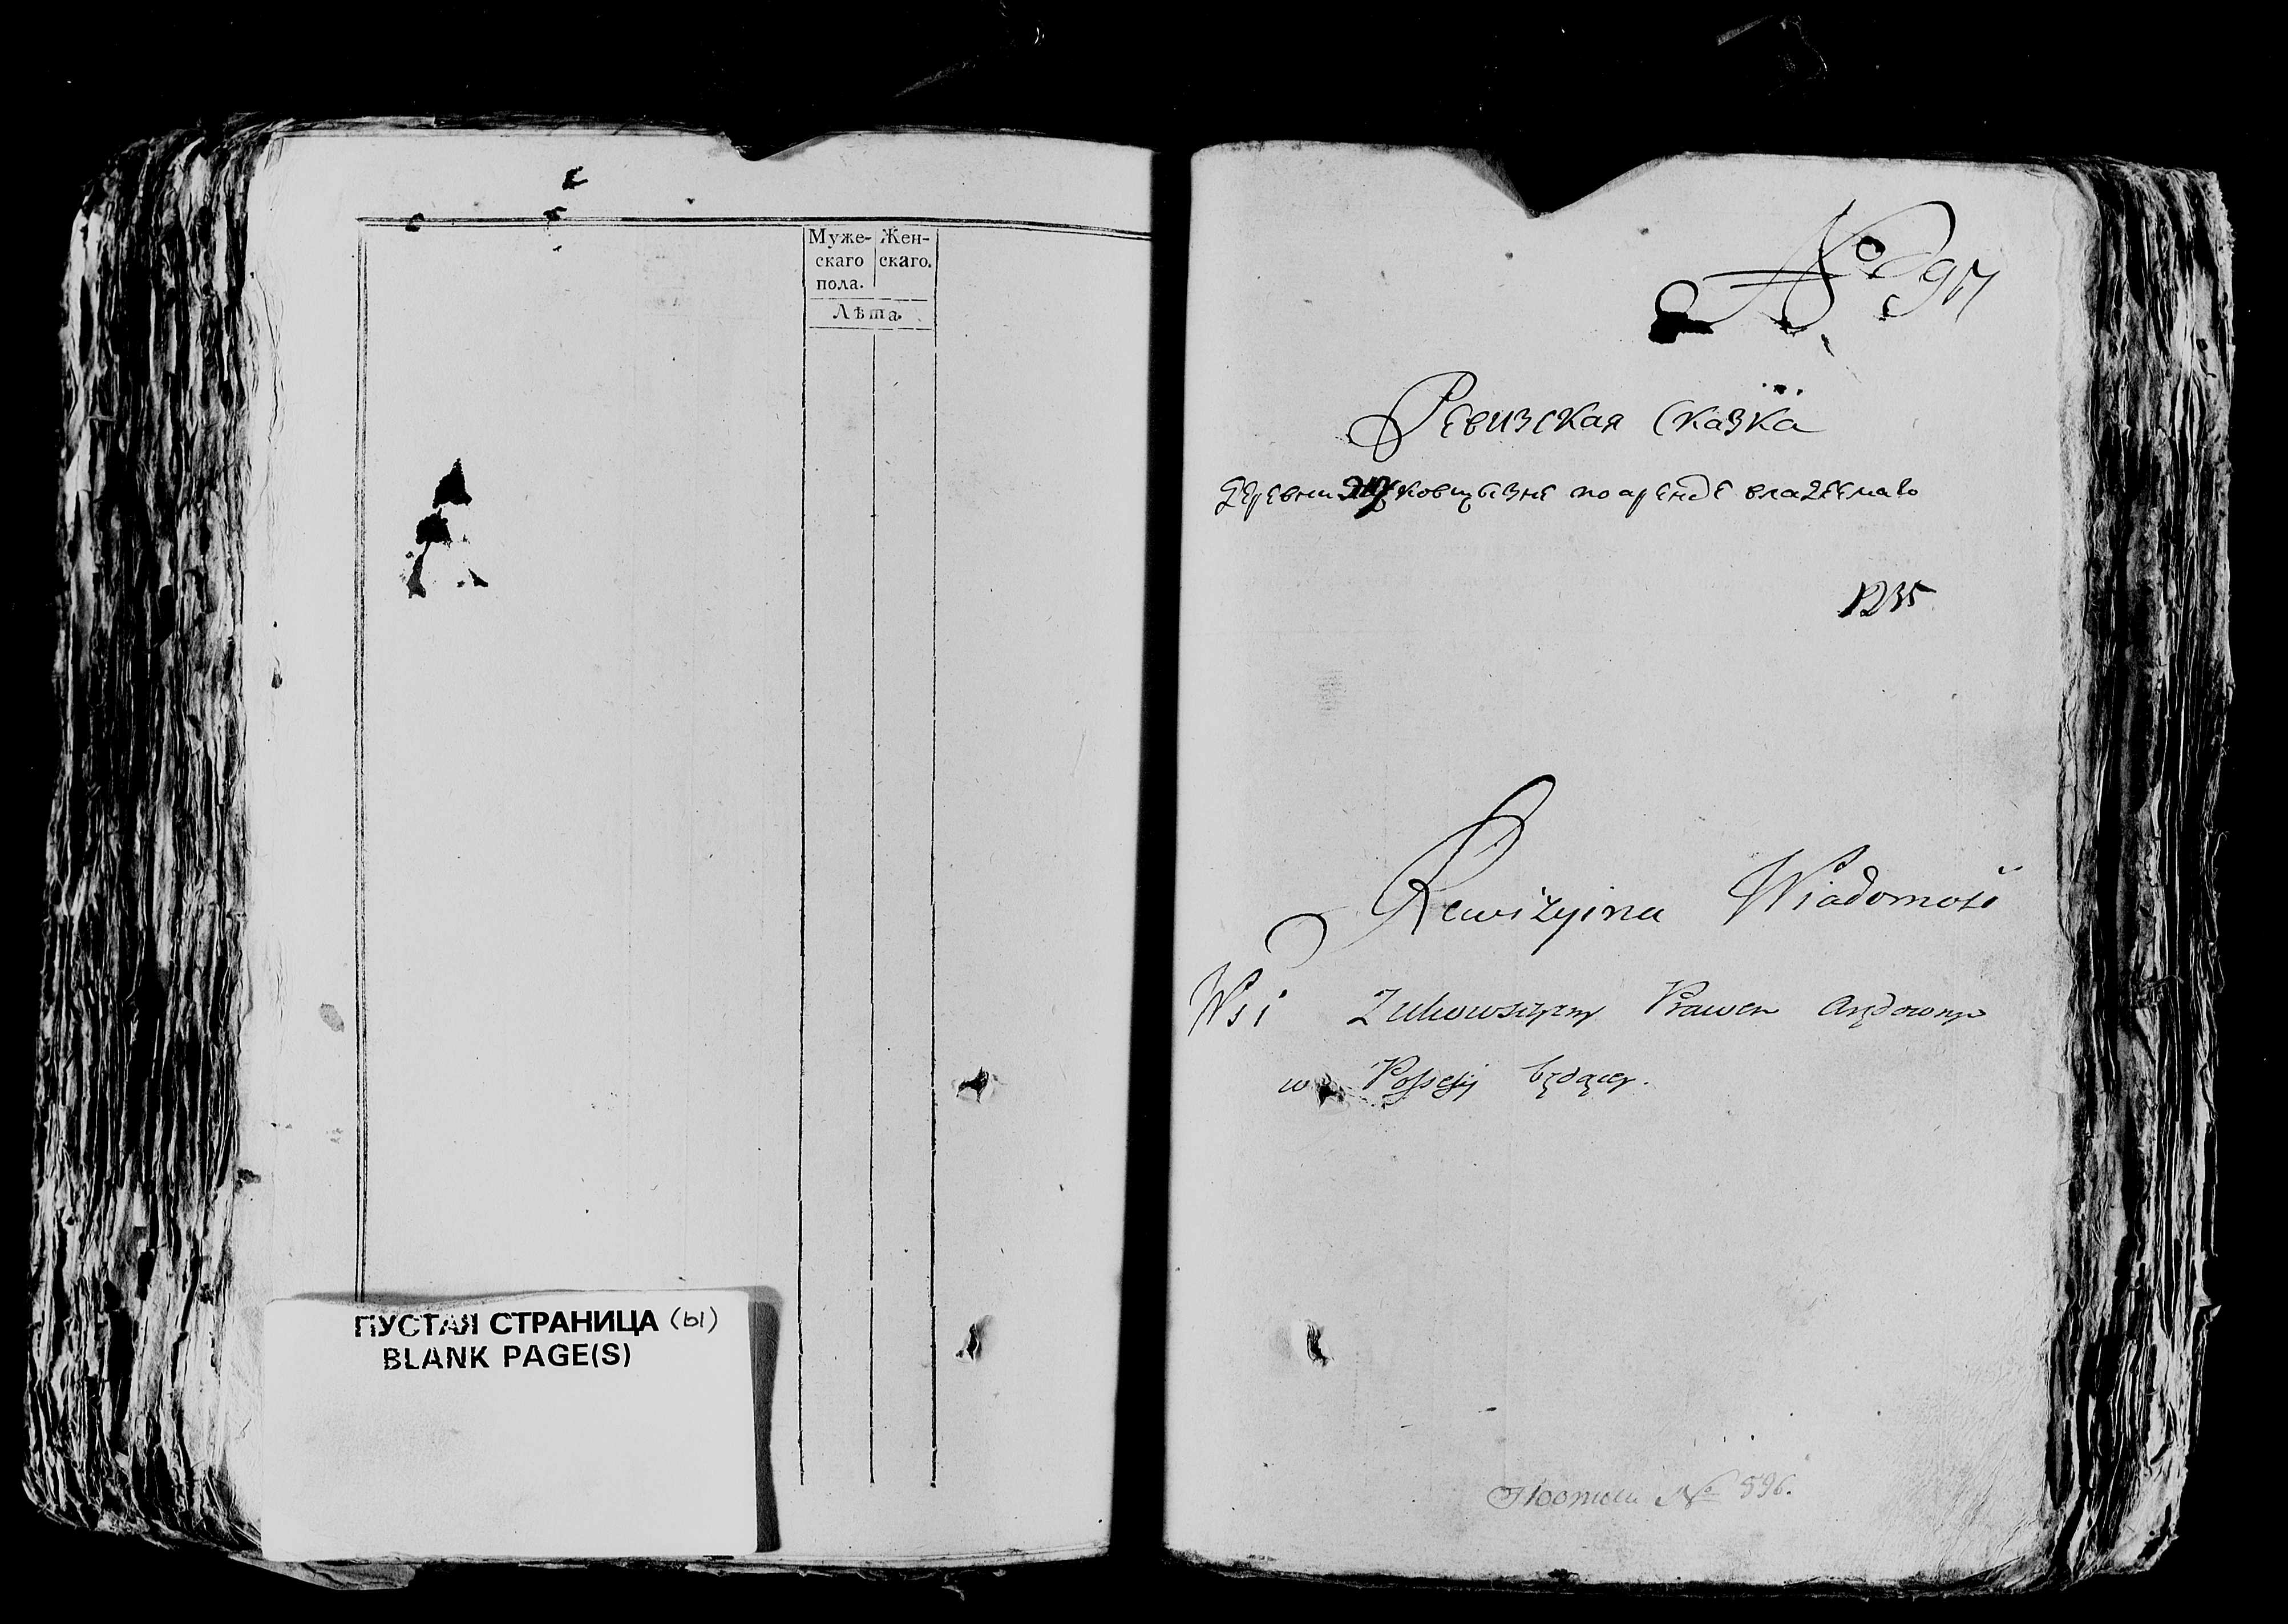 Муже- Жен-
скаго скаго.
пола.
Лѣта.
ПУСТАЯ СТРАНИЦА (ы)
BLANK PAGE(S)
№ 97
Ревизская Сказка
деревни Жуковщызне по аренде владеемаго
1235
Rewizyina Wiadomość
Wsi Zukowszczyzny Prawem Arędownym
w Possesij będącey.
№ 596.